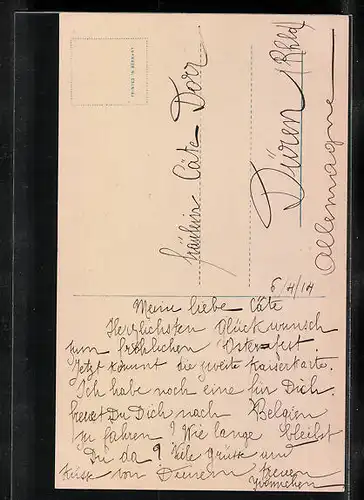 PRINTED IN GERMANY
Fräulein Cäte Dorr
Düren (Rhld)
Allemagne
6/4/14
Meine liebe Cäte
Herzlichsten Glückwunsch
zum fröhlichen Osterfest.
Jetzt kommt die zweite Kaiserkarte.
Ich habe noch eine für Dich.
freust Du Dich nach Belgien
zu fahren? Wie lange bleibst
Du da? Viele Grüsse und
Küsse von Deinem treuen